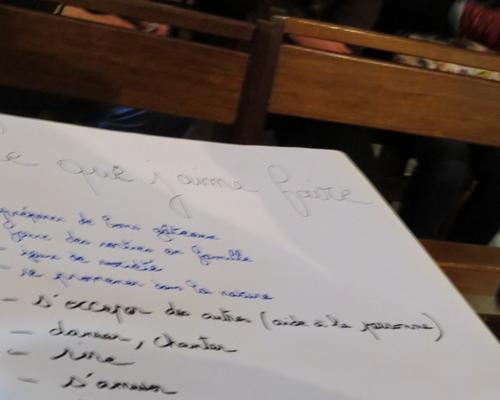 e que j'aime faire
préparer de bons gâteaux
faire des sorties en famille
jeux de société
- se promener dans la nature
- s'occuper des autres (aide à la personne)
- danser, chanter
- rire
- s'amuser